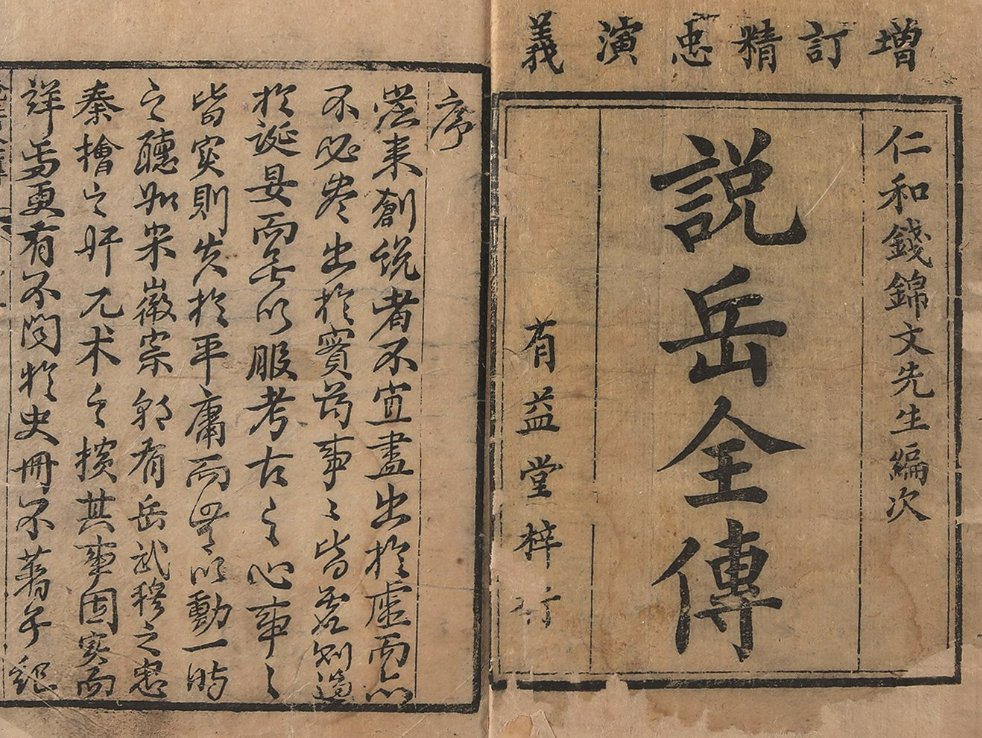 增訂精忠演義
仁和錢錦文先生編次
説岳全傳
有益堂梓行
序
從來創說者不宜盡出於虛而亦
不必盡出於實苟事〻皆虛則過
於誕妄而無以服考古之心事〻
皆實則失於平庸而無以動一時
之聽如宋徽宗朝有岳武穆之忠
秦檜之奸兀术之横其事固實而
詳焉更有不聞於史冊不著于紀